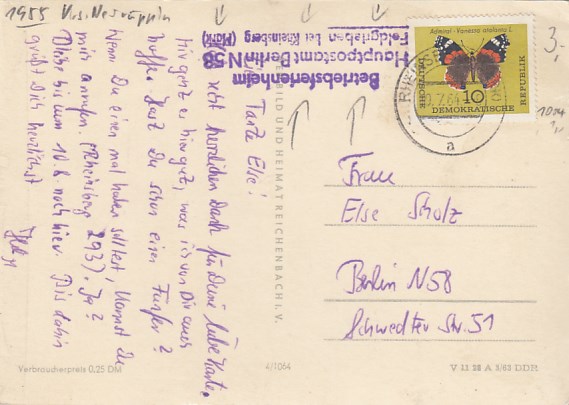 1955 Krs. Neuruppin
Betriebsferienheim
Hauptpostamt Berlin N 58
Feldgrieben bei Rheinsberg
(Mark)
Admiral - Vanessa atalanta L.
DEUTSCHE
10
DEMOKRATISCHE
REPUBLIK
RHEINSBERG
a
3,-
Tante Else!
recht herzlichen Dank für Deine liebe Karte.
hier gut, was ich von Dir auch
hoffe. Hast Du schon einen
Wenn Du einmal haben solltest, kannst Du
mir anrufen. (Rheinsberg 293). Ja?
bis zum 10.8. noch hier. Bis dahin
grüßt Dich herzlichst
BILD UND HEIMAT REICHENBACH I. V.
Frau
Else Scholz
Berlin N58
Schwedter Str. 51
Verbraucherpreis 0,25 DM
4/1064
V 11 28 A 1/63 DDR